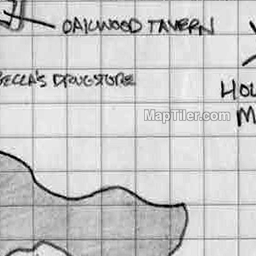 OAKWOOD TAVERN
ECCA'S DRUGSTORE
HOU
MapTiler.com
M